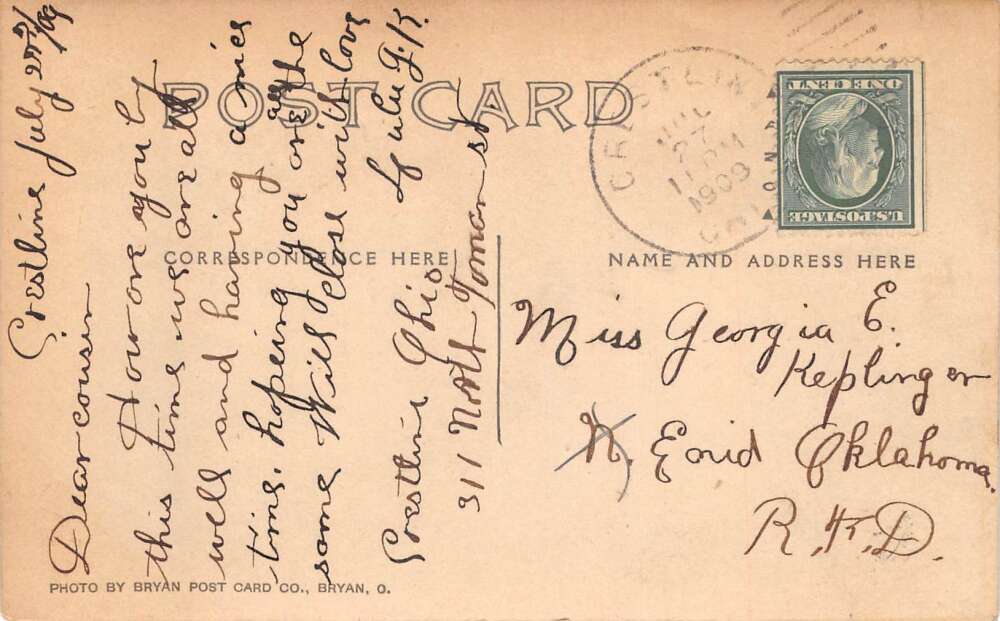 POST CARD
CORRESPONDENCE HERE
NAME AND ADDRESS HERE
Crestline July 27th/09
Dear cousin
How are you by
this time we are all
well and having a nice
time. hopeing you are all the
same Will Close with love
Lulu G. K.
Crestline Ohio
311 North Toman st
Miss Georgia E.
Keplinger
N. Enid Oklahoma.
R.F.D.
CRESTLINE
JUL
27
PM
1909
OHIO
U.S. POSTAGE
ONE CENT
PHOTO BY BRYAN POST CARD CO., BRYAN, O.